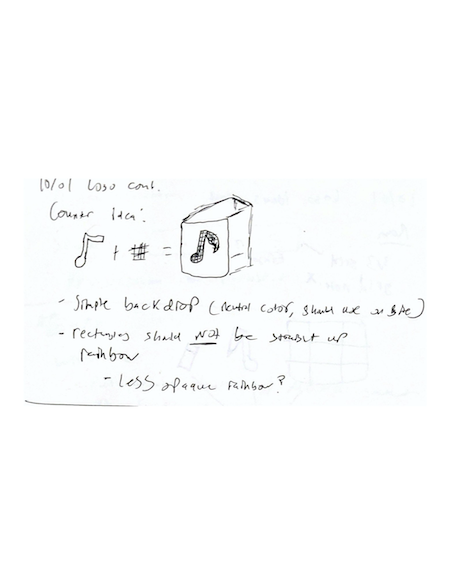 10/01 Logo cont.
Counter Idea:
+ =
- Simple backdrop (neutral color, should use as BAC)
- rectangles should NOT be straight up
rainbow
- Less opaque rainbow?